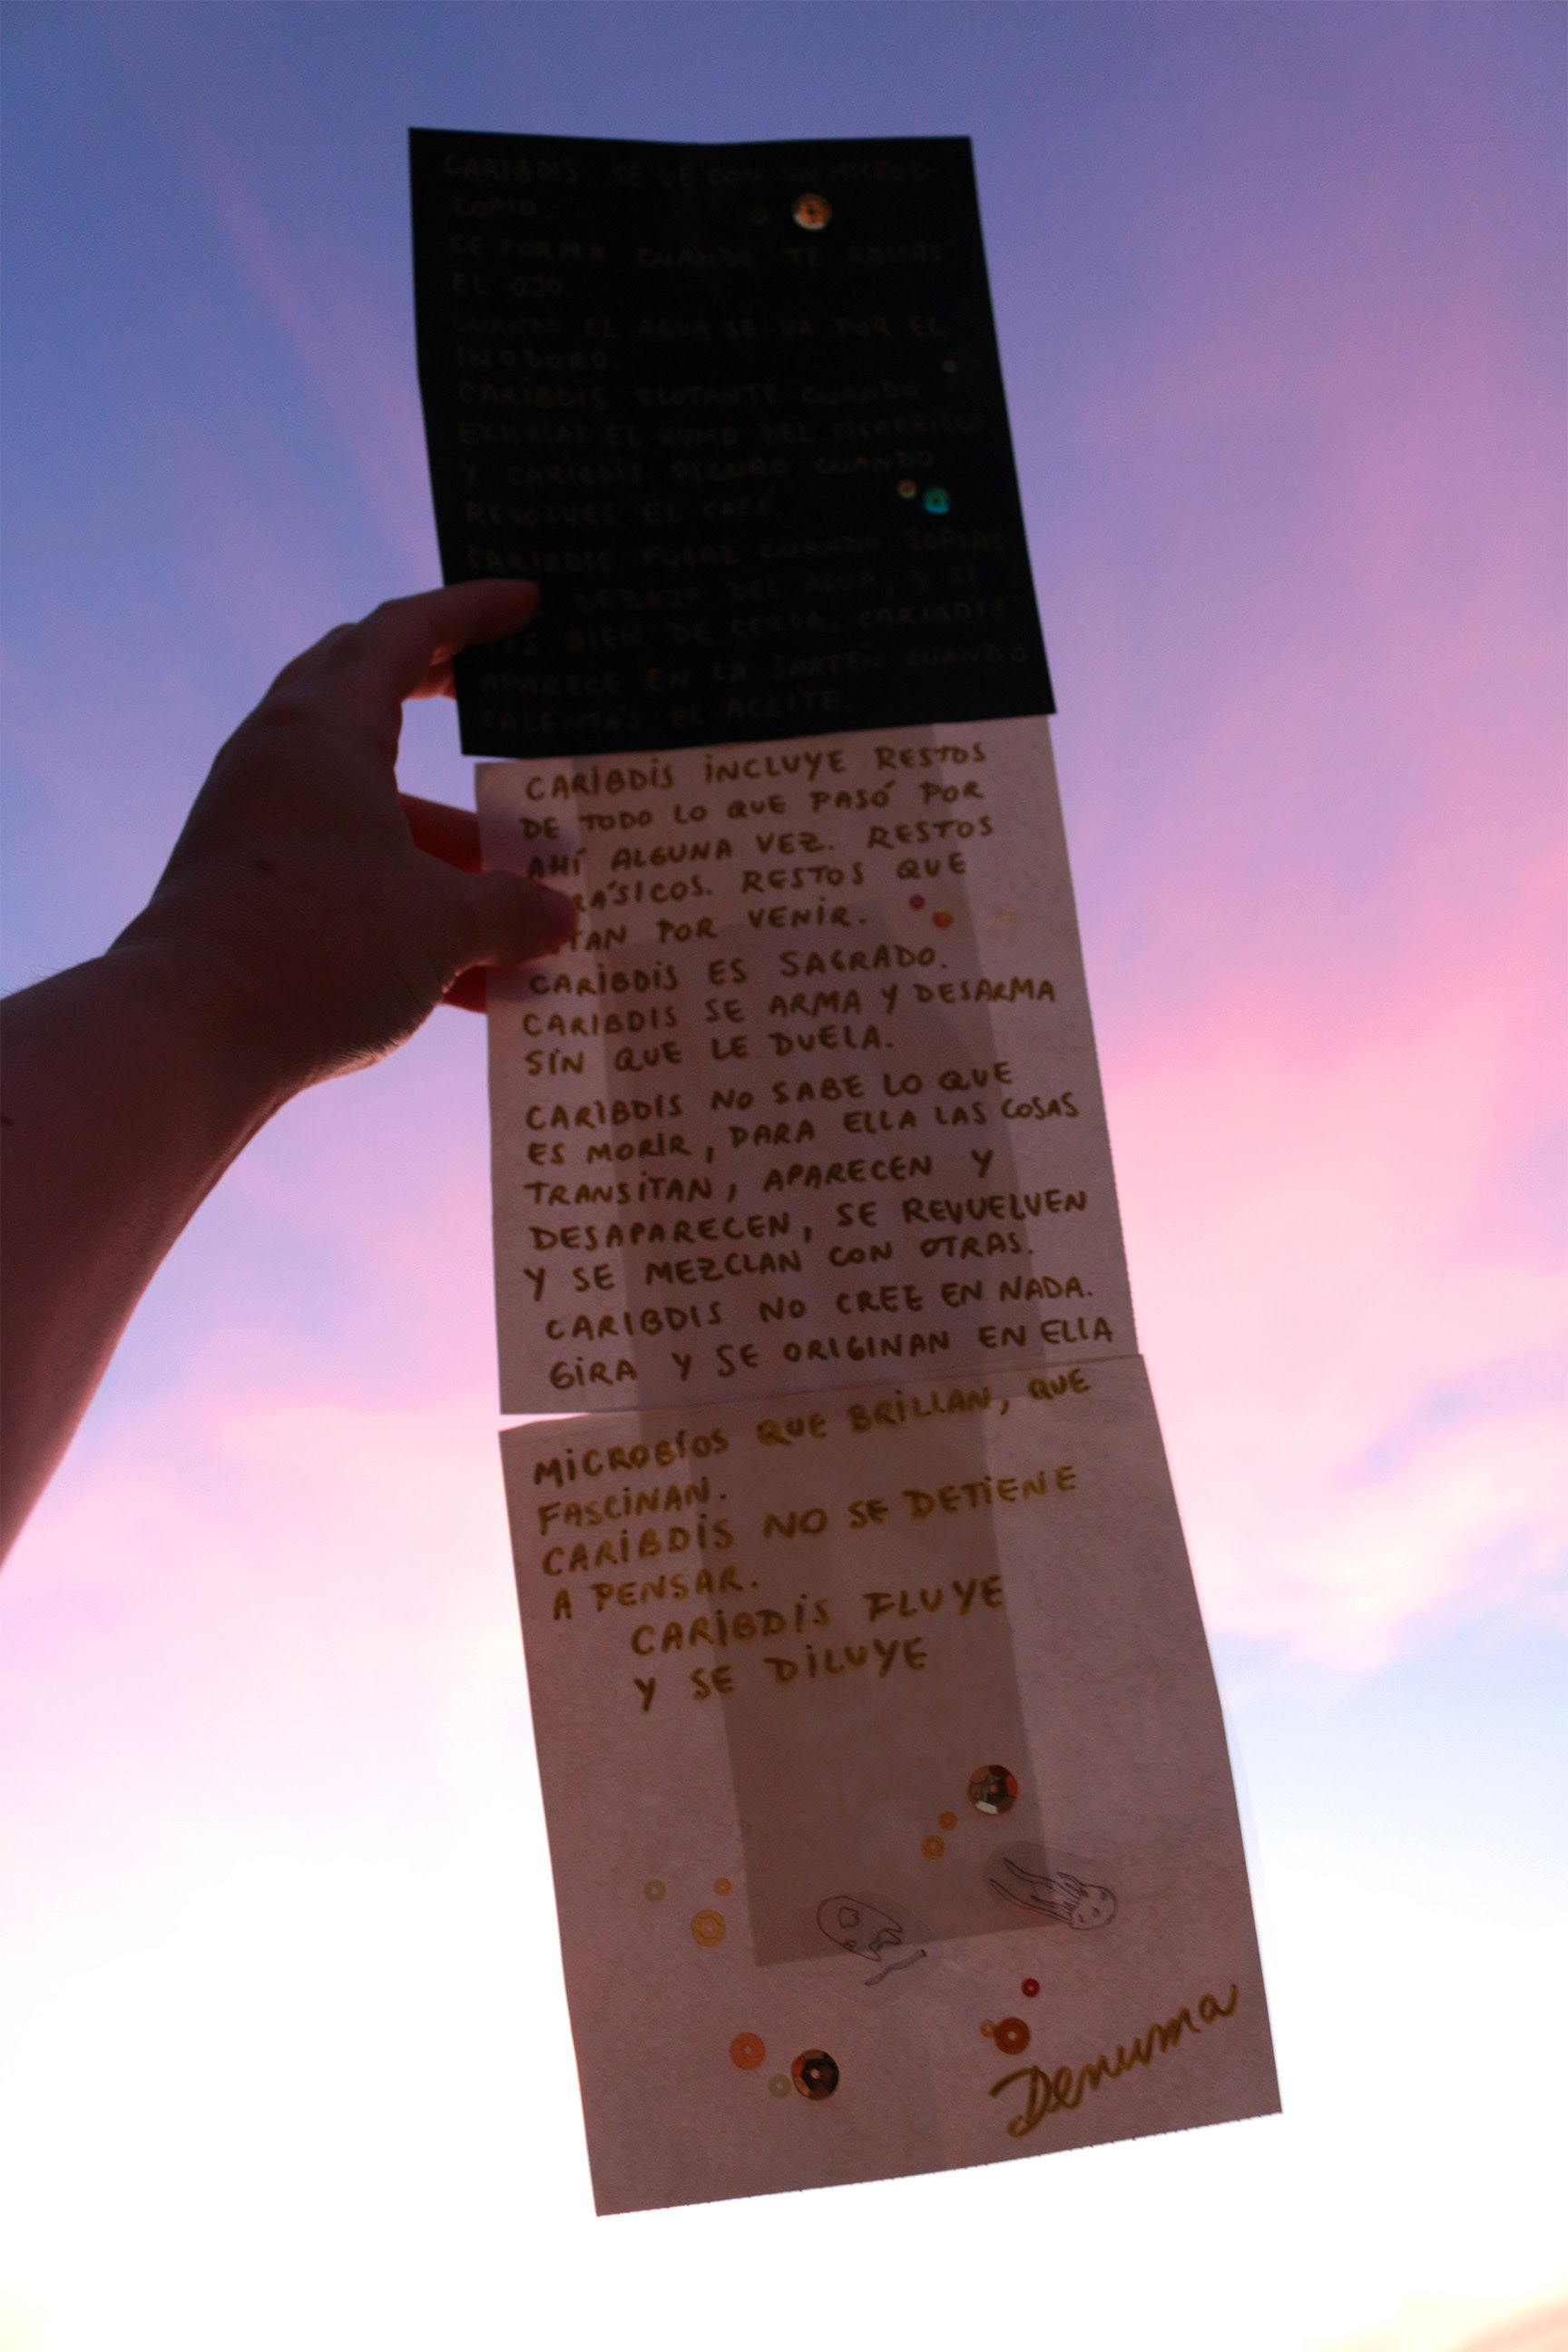 CARIBDIS SE VE CON UN MICROS-
COPIO.
SE FORMA CUANDO TE RASCAS
EL OJO.
CUANDO EL AGUA SE VA POR EL
INODORO.
CARIBDIS FLOTANTE CUANDO
EXHALAS EL HUMO DEL CIGARRILLO
Y CARIBDIS OSCURO CUANDO
REVOLVES EL CAFÉ.
CARIBDIS FUGAZ CUANDO SOPLAS
DEBAJO DEL AGUA, Y SI
BIEN DE CERCA, CARIBDIS
APARECE EN LA SARTÉN CUANDO
CALENTÁS EL ACEITE.
CARIBDIS INCLUYE RESTOS
DE TODO LO QUE PASÓ POR
AHÍ ALGUNA VEZ. RESTOS
RÁSICOS. RESTOS QUE
TAN POR VENIR.
CARIBDIS ES SAGRADO.
CARIBDIS SE ARMA Y DESARMA
SIN QUE LE DUELA.
CARIBDIS NO SABE LO QUE
ES MORIR, PARA ELLA LAS COSAS
TRANSITAN, APARECEN Y
DESAPARECEN, SE REVUELVEN
Y SE MEZCLAN CON OTRAS.
CARIBDIS NO CREE EN NADA.
GIRA Y SE ORIGINAN EN ELLA
MICROBÍOS QUE BRILLAN, QUE
FASCINAN.
CARIBDIS NO SE DETIENE
A PENSAR.
CARIBDIS FLUYE
Y SE DILUYE
Denuma